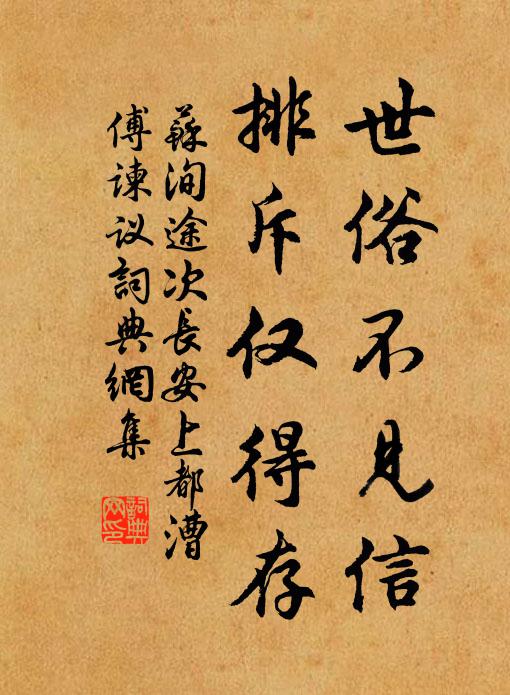 世俗不见信
排斥仅得存
蘇洵途次長安上都漕
傅諫议詞典網集
詞典
网印